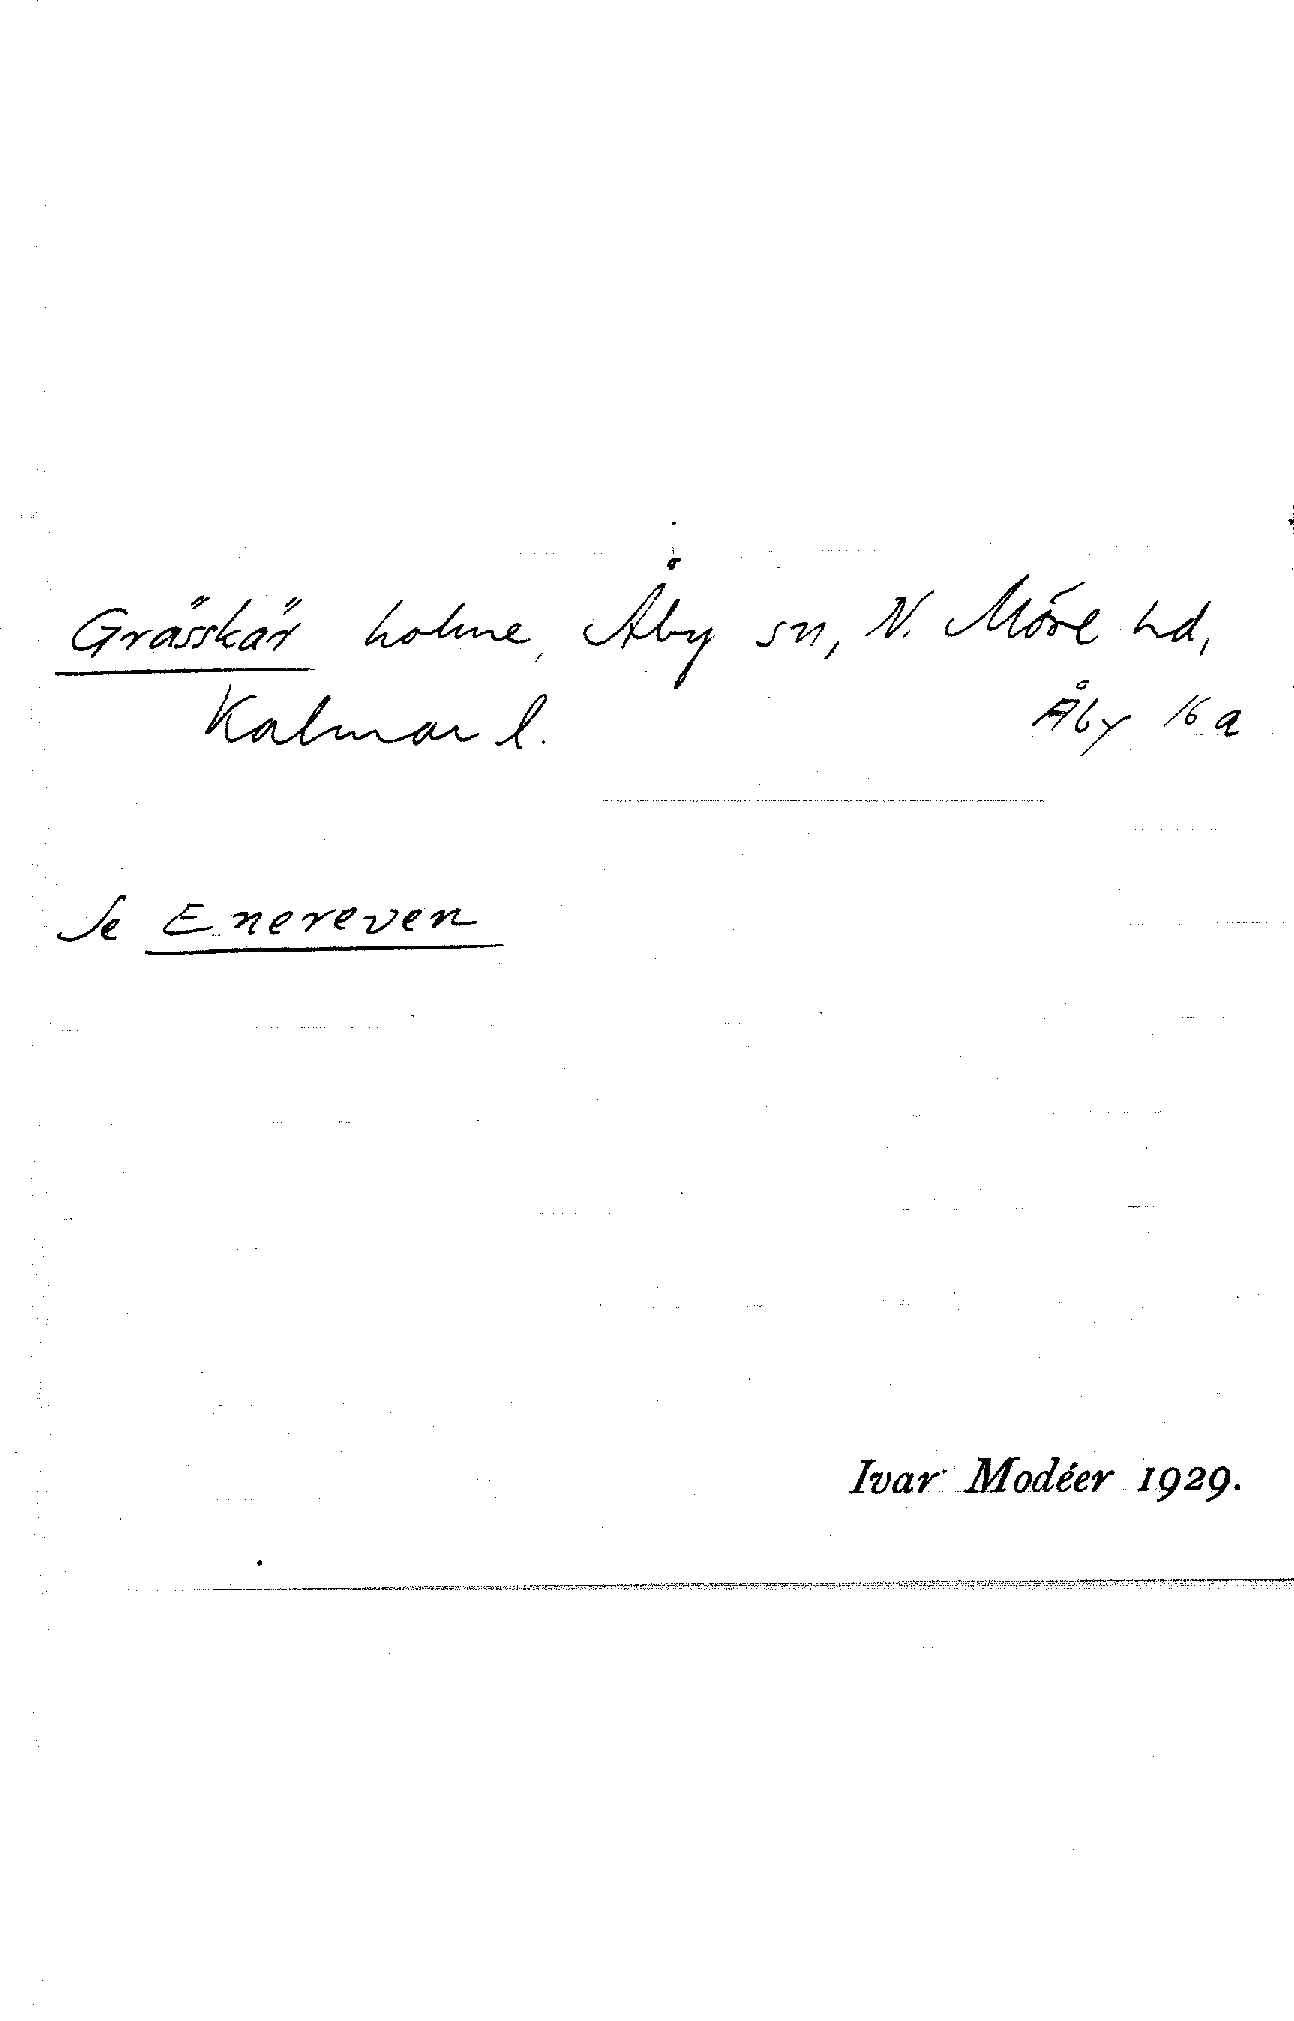 Grässkär holme, Åby sn, N. Möre hd,
Kalmar l. Åby 16 a
Se Enereven
Ivar Modéer 1929.